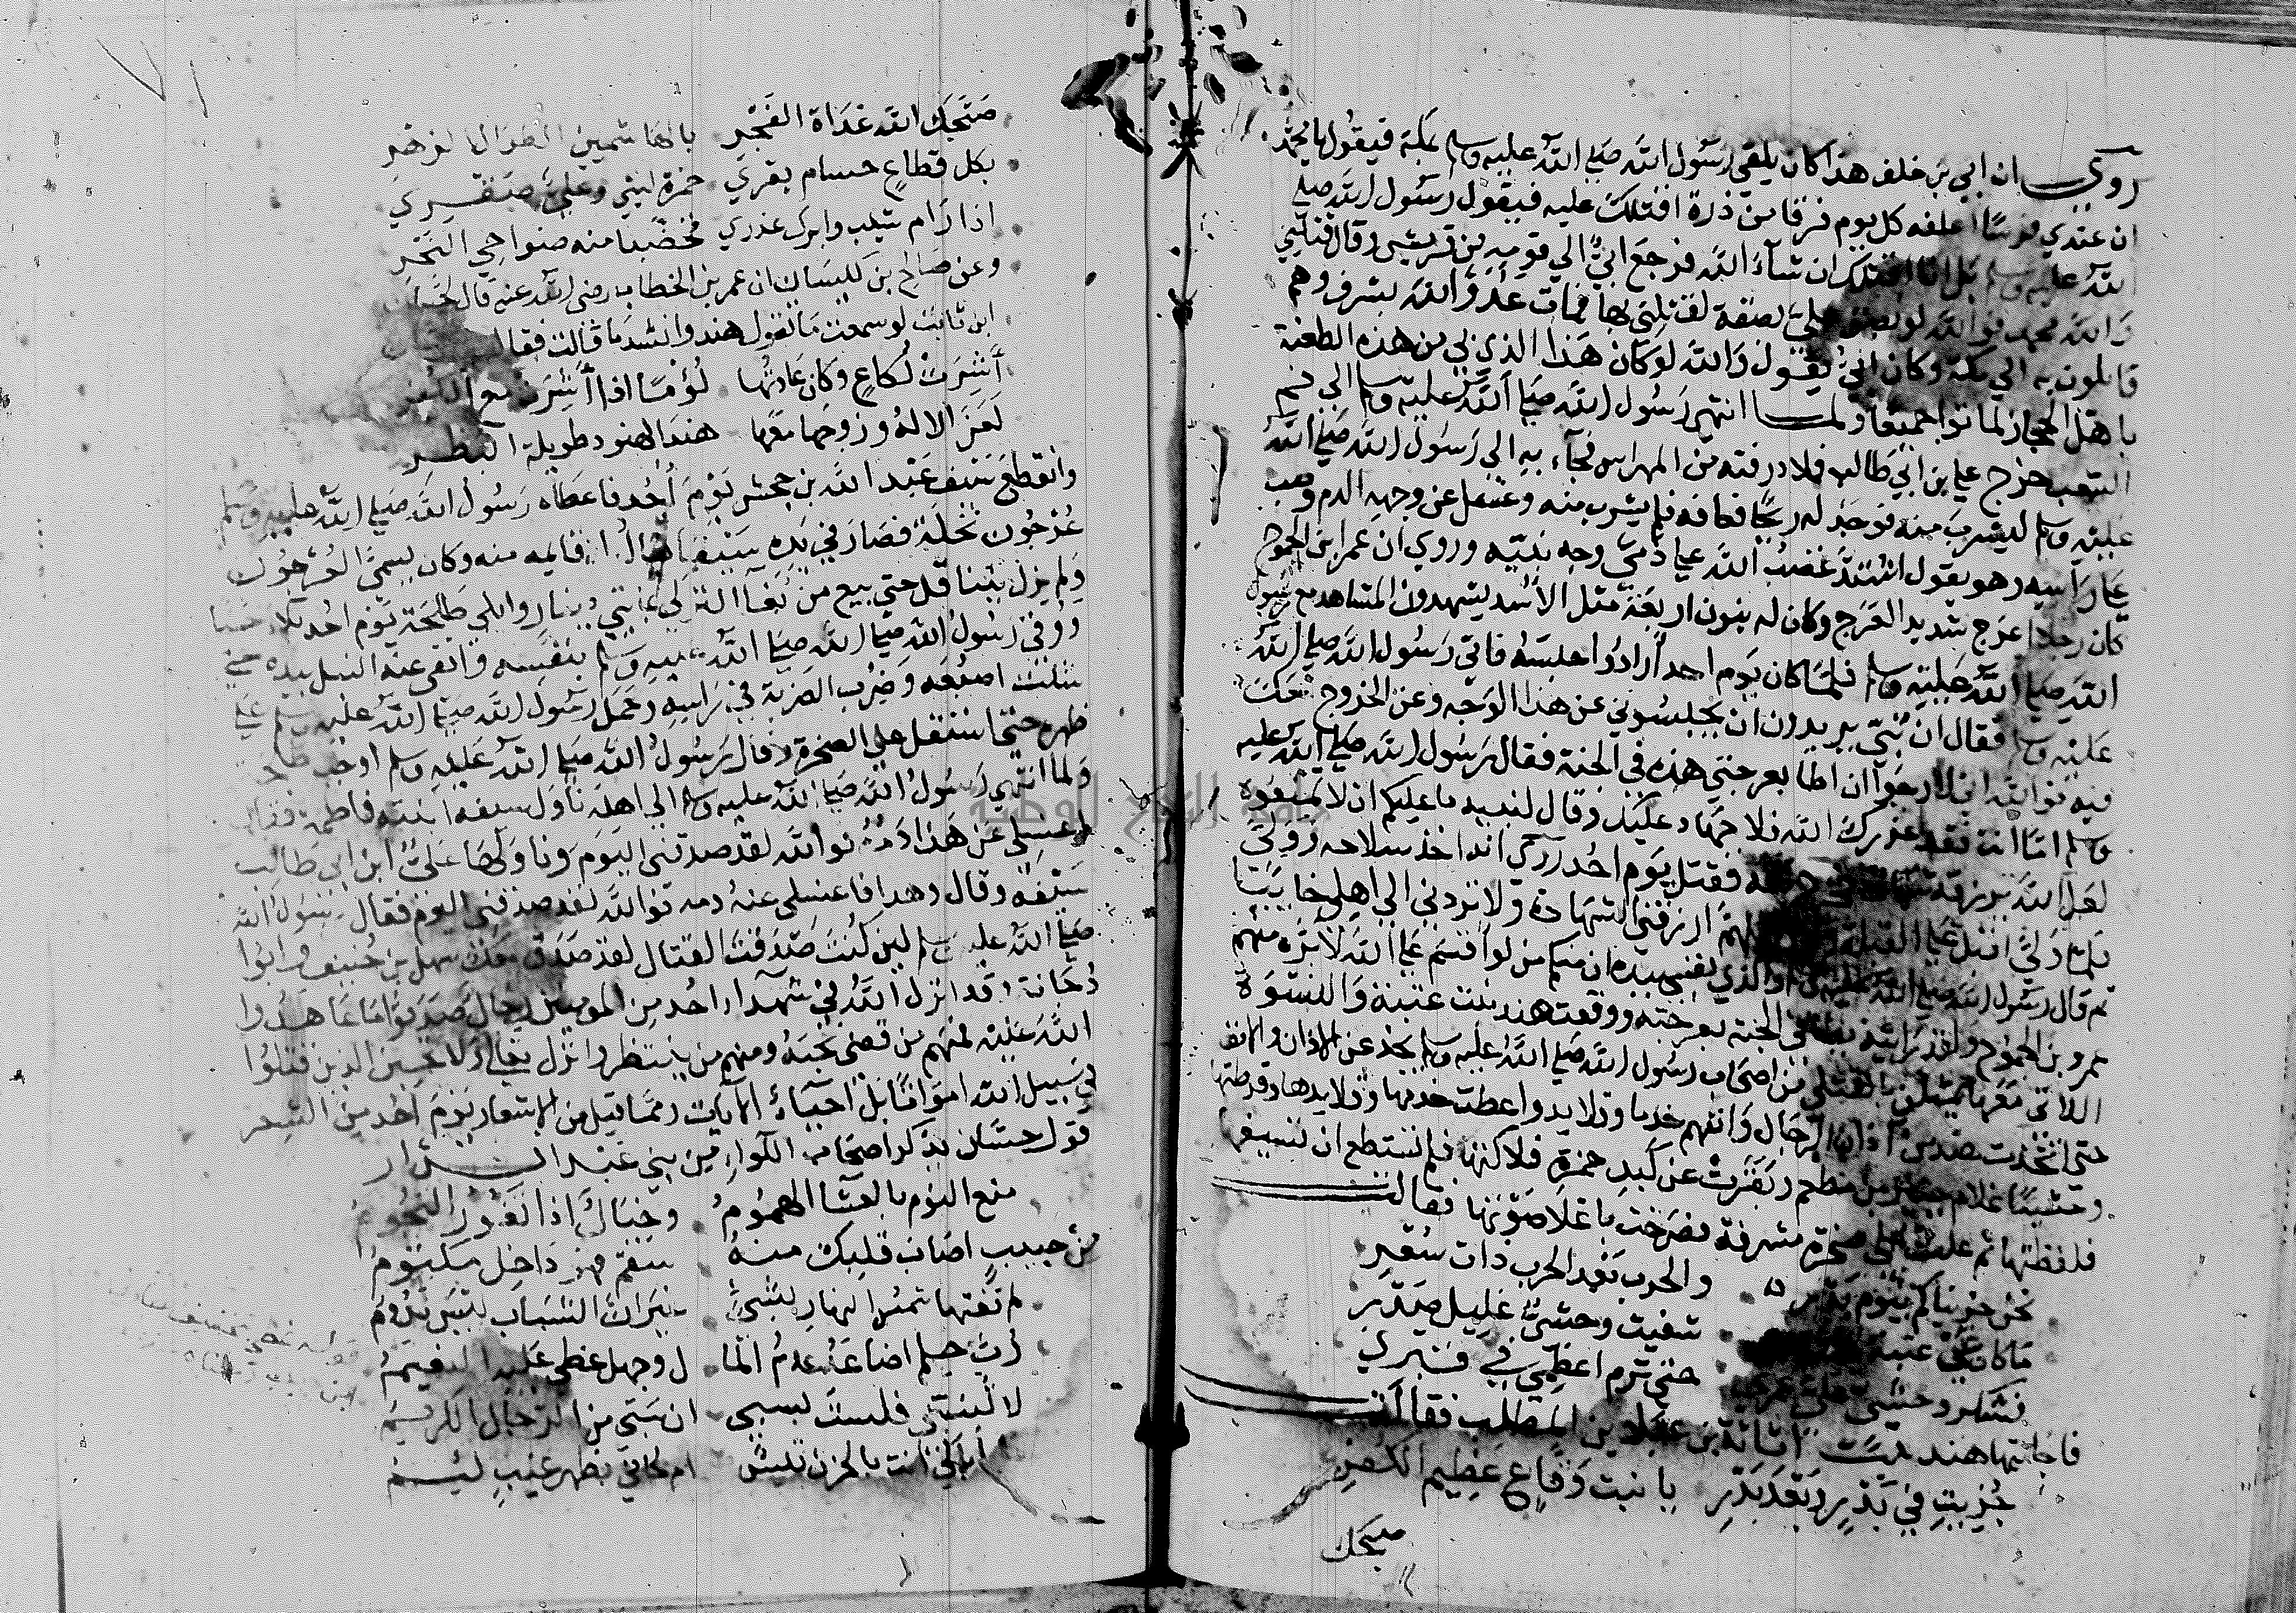 روي ان ابي بن خلف هذا كان يلقى رسول الله صلى الله عليه وسلم بمكة فيقول يا محمد
ان عندي فرسا اعلفه كل يوم فرقا من ذرة اقتلك عليه فيقول رسول الله صلى
الله عليه وسلم بل انا اقتلك ان شاء الله فرجع ابي الي قومه من قريش وقال قتلني
والله محمد فوالله لو بصق علي بصقة لقتلني بها فمات عدو الله بسرف وهم
قافلون به الي مكة وكان ابي يقول والله لو كان هذا الذي بي من هذه الطعنة
باهل الحجاز لماتوا جميعا ولما انتهى رسول الله صلى الله عليه وسلم الي فم
الشعب خرج علي بن ابي طالب فملا درقته من المهراس فجاء به الي رسول الله صلى الله
عليه وسلم ليشرب منه فوجد له ريحا فعافه فلم يشرب منه وغسل عن وجهه الدم وصب
علي راسه وهو يقول اشتد غضب الله علي من دمي وجه نبيه وروي ان عمرو بن الجموح
كان رجلا اعرج شديد العرج وكان له بنون اربعة مثل الاسد يشهدون المشاهد مع رسول
الله صلى الله عليه وسلم فلما كان يوم احد ارادوا حبسه فاتى رسول الله صلى الله
عليه وسلم فقال ان بني يريدون ان يحبسوني عن هذا الوجه وعن الخروج معك
فيه فوالله اني لارجوا ان اطا بعرجتي هذه في الجنة فقال رسول الله صلى الله عليه
وسلم اما انت فقد عذرك الله فلا جهاد عليك وقال لبنيه ما عليكم ان لا تمنعوه
لعل الله يرزقه فقتل يوم احد روي انه اخذ سلاحه وولى
فلما ولى اقبل علي القبلة وقال اللهم ارزقني الشهادة ولا تردني الي اهلي خايبا
ثم قال رسول الله صلى الله عليه وسلم والذي نفسي بيده ان منكم من لو اقسم على الله لابره منهم
عمرو بن الجموح ولقد رايته يطا في الجنة بعرجته ووقعت هند بنت عتبة والنسوة
اللاتي معها يمثلن بالقتلى من اصحاب رسول الله صلى الله عليه وسلم يجدعن الاذان والانف
حتى اتخذت هند من اذان الرجال وانفهم خدما وقلايد واعطت خدمها وقلايدها وقرطتها
وحشيا غلام جبير بن مطعم وبقرت عن كبد حمزة فلاكتها فلم تستطع ان تسيغها
فلفظتها ثم علت على صخرة مشرفة فصرخت باعلا صوتها فقالت
نحن جزيناكم بيوم بدر والحرب بعد الحرب ذات سعر
ما كان عن عتبة شفيت وحشي غليل صدر
فشكر وحشي علي عمري حتى ترم اعظمي في قبري
فاجابتها هند بنت اثاثة بن عباد بن المطلب فقالت
خزيت في بدر وبعد بدر يا بنت وقاع عظيم الكفر
صبحك
صبحك الله غداة الفجر بالهاشميين الطوال الزهر
بكل قطاع حسام يفري حمزة ليثي وعلي صقري
اذا رام شيب وابوك غدري فخضبا منه ضواحي النحر
وعن صالح بن كيسان ان عمر بن الخطاب رضي الله عنه قال لحسان
ابن ثابت لو سمعت ما تقول هند وانشد ما قالت فقال
أشرت لكاع وكان عادتها لؤما اذا أشرت مع الكفر
لعن الاله وزوجها معها هند الهنود طويلة البظر
وانقطع سيف عبد الله بن جحش يوم أحد فاعطاه رسول الله صلى الله عليه وسلم
عرجون نخلة فصار في يده سيفا قايمه منه وكان يسمى العرجون
ولم يزل يتناقل حتى بيع من بغا التركي بمايتي دينار وابلي طلحة يوم احد بلاء حسنا
ووقى رسول الله صلى الله عليه وسلم بنفسه واتقى عنه النبل بيده حتى
شلت اصبعه وضرب الضربة في راسه وحمل رسول الله صلى الله عليه وسلم علي
ظهره حتى استقل علي الصخرة وقال رسول الله صلى الله عليه وسلم اوجب طلحة
ولما انتهى رسول الله صلى الله عليه وسلم الي اهله ناول سيفه ابنته فاطمة فقال
اغسلي عن هذا دمه فوالله لقد صدقني اليوم وناولها علي ابن ابي طالب
سيفه وقال وهذا فاغسلي عنه دمه فوالله لقد صدقني اليوم فقال رسول الله
صلى الله عليه وسلم لين كنت صدقت القتال لقد صدق معك سهل بن حنيف وابوا
دجانة وقد انزل الله في شهداء احد من المومنين رجال صدقوا ما عاهدوا
الله عليه فمنهم من قضى نحبه ومنهم من ينتظر وانزل فيهم ولا تحسبن الذين قتلوا
في سبيل الله امواتا بل احياء الايات ومما قيل من الاشعار يوم احد من الشعر
قول حسان يذكر اصحاب اللواء من بني عبد الدار
منع النوم بالعشا الهموم وخيال اذا تغور النجوم
من حبيب اصاب قلبك منه سقم فهو داخل مكتوم
لم تفتها شمس النهار بشيء غير ان الشباب ليس يدوم
رب حلم اضاعه عدم الما ل وجهل غطى عليه النعيم
لا تسبنني فلست بسبي ان سبي من الرجال الكريم
ما ابالي أنب بالحزن تيس ام لحاني بظهر غيب لئيم